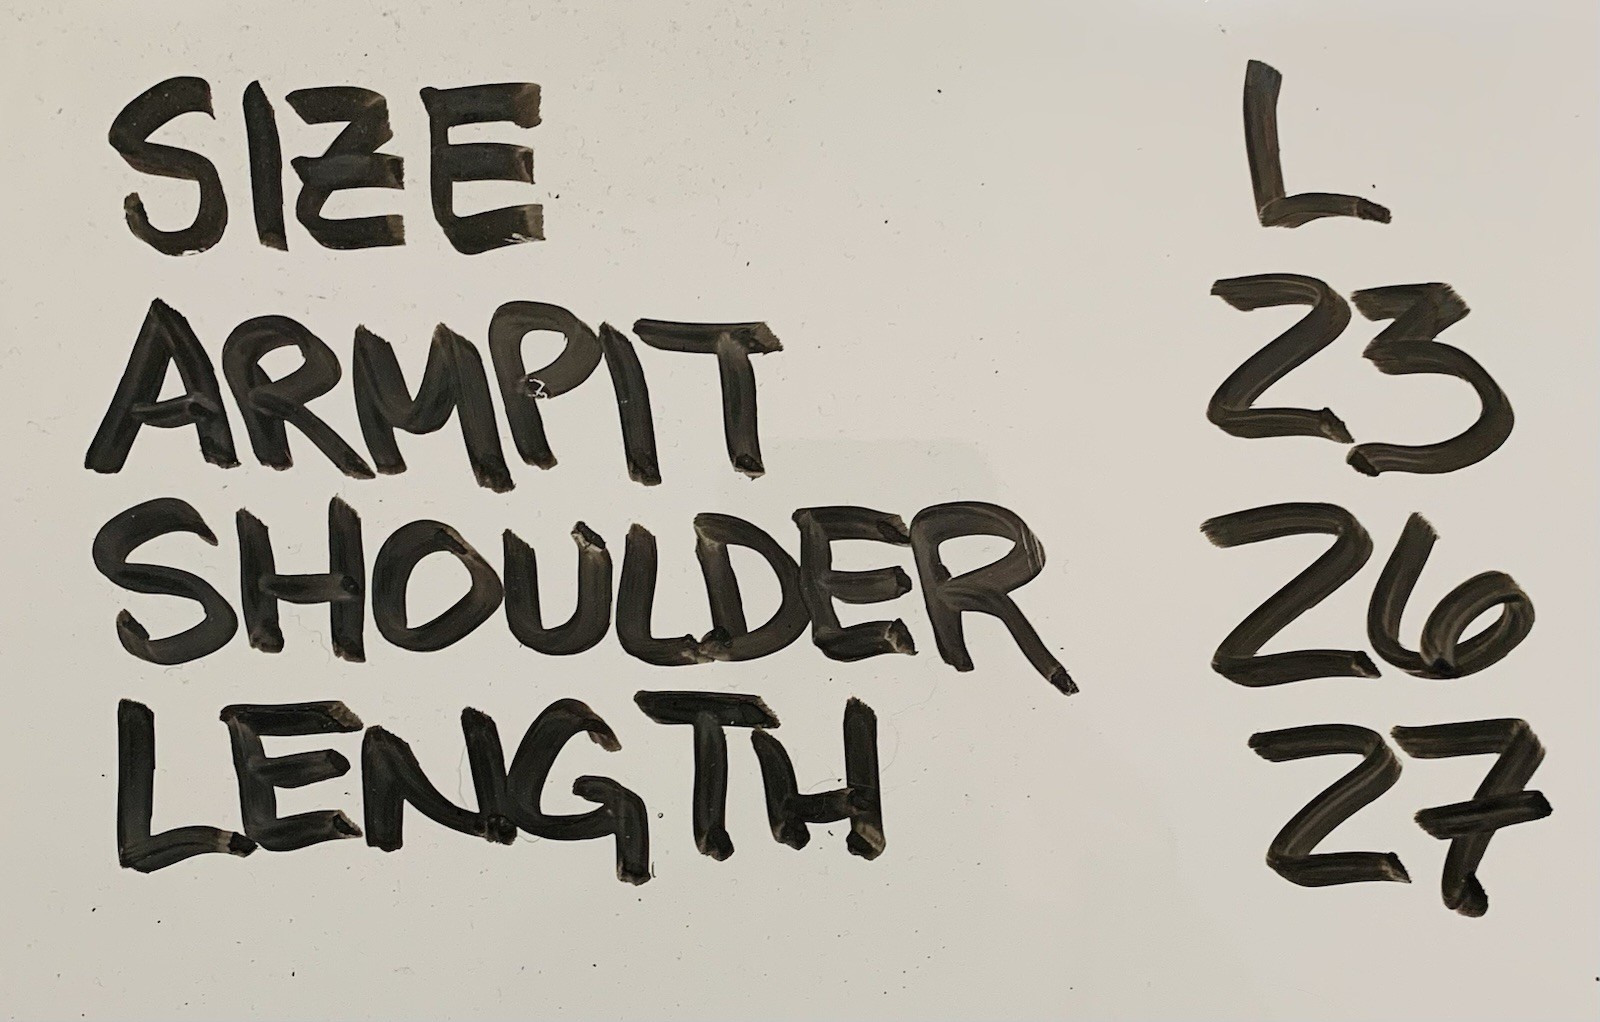 SIZE L
ARMPIT 23
SHOULDER 26
LENGTH 27